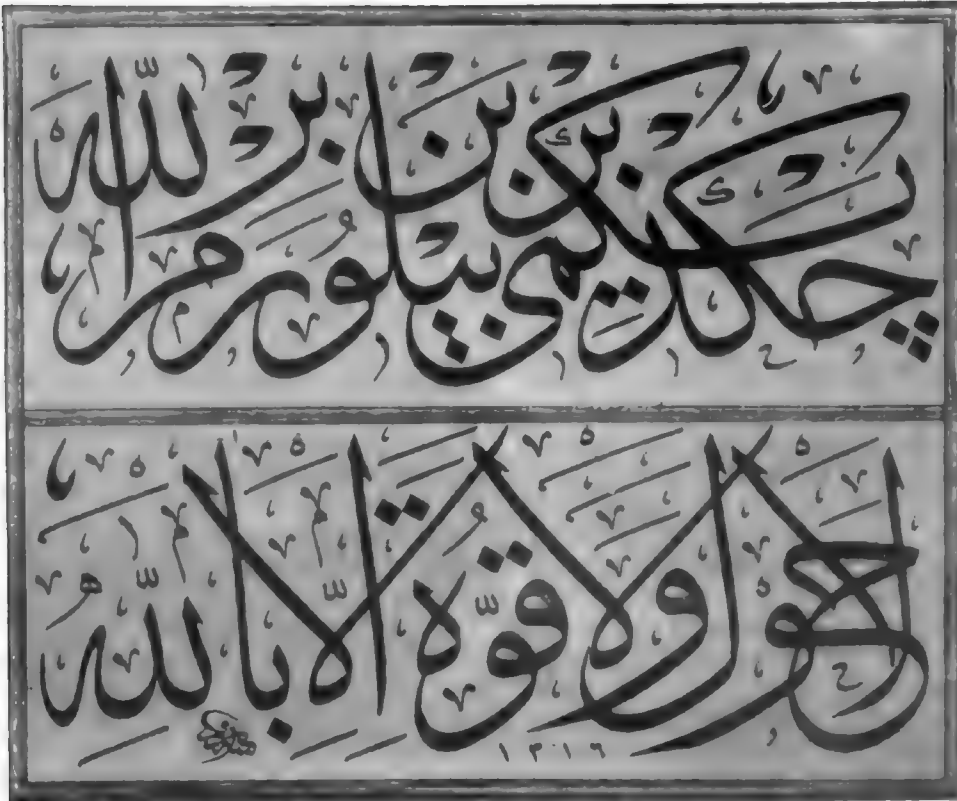 چكديكمى بر بن بيلورم بر الله
لا حول ولا قوّة الّا باللّه
١٣١٦